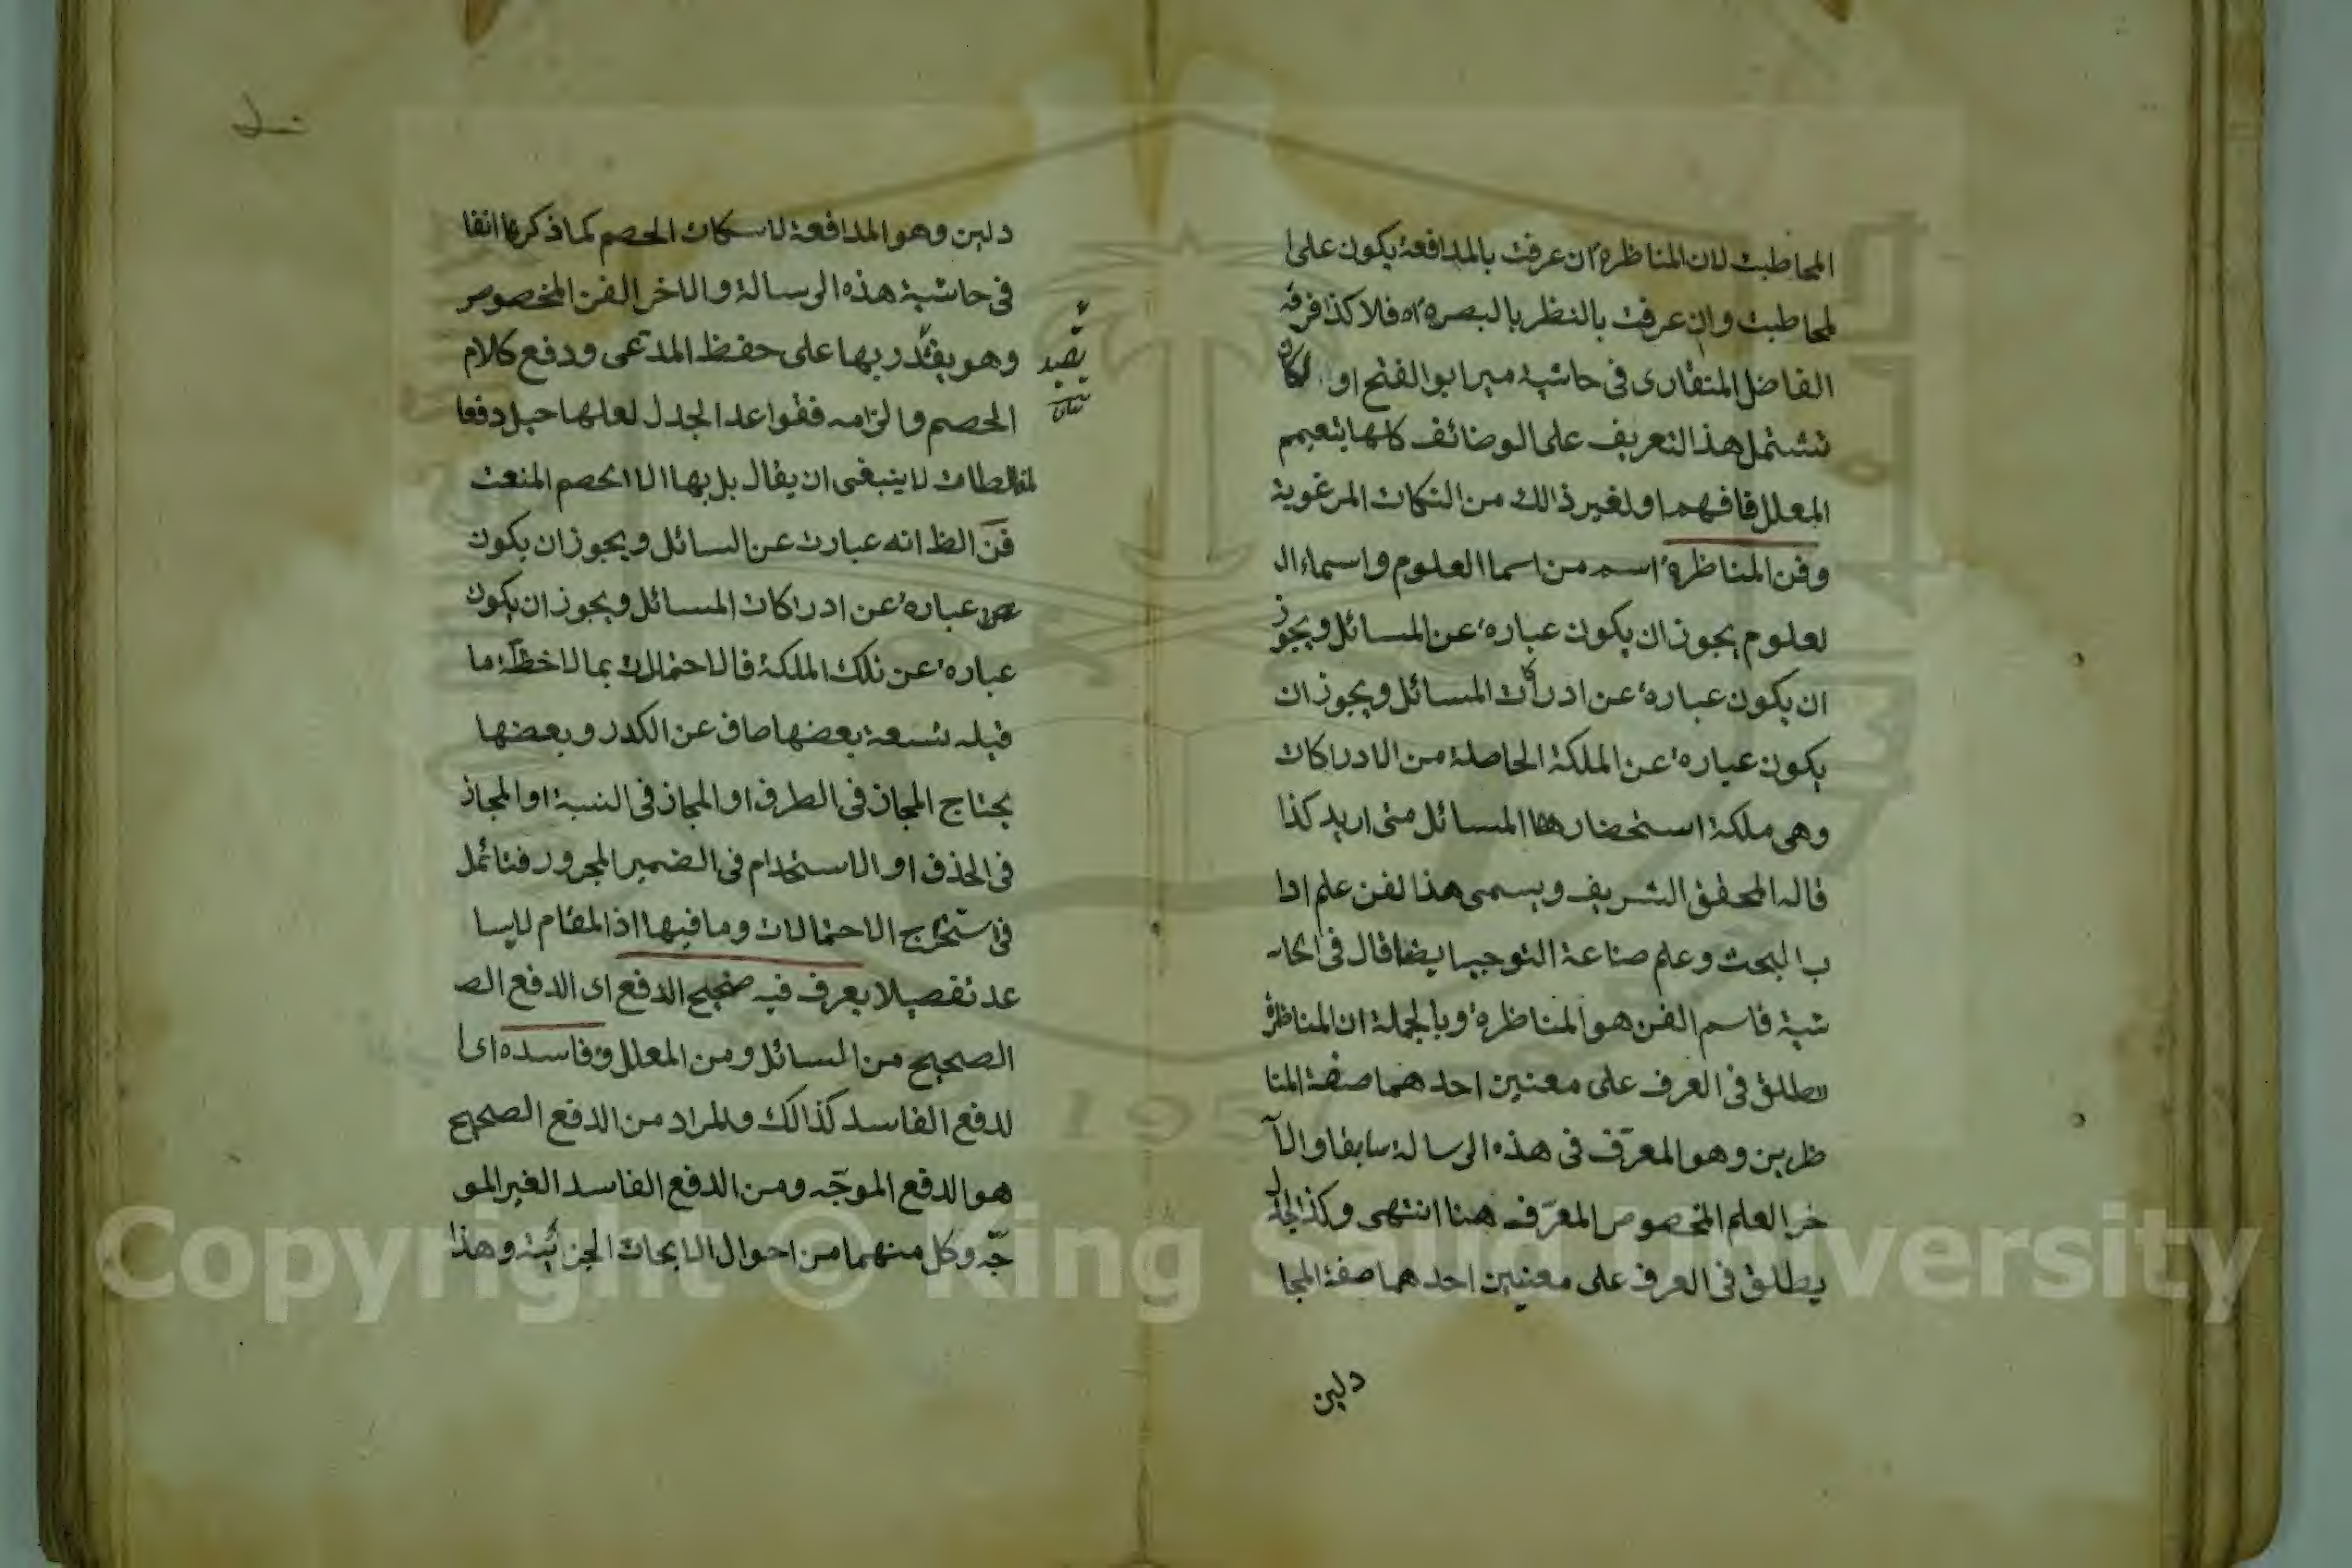 المخاطبت لان المناظرة ان عرفت بالمدافعة يكون على ا
لمخاطبت وان عرفت بالنظر بالبصرة اه فلا كذا فرقه
الفاضل المتقارى فى حاشية مير ابو الفتح او لكان
تشتمل هذا التعريف على الوضائف كلها بتعميم
المعلل فافهم او لغير ذالك من النكات المرغوبة
وفن المناظرة اسم من اسما العلوم واسماء ال
لعلوم يجوز ان يكون عبارة عن المسائل ويجوز
ان يكون عبارة عن ادراكات المسائل ويجوز ان
يكون عبارة عن الملكة الحاصلة من الادراكات
وهى ملكة استحضار المسائل متى اريد كذا
قاله المحقق الشريف ويسمى هذا لفن علم ادا
ب البحث وعلم صناعة التوجيه ايضا قال فى الحا
شية فاسم الفن هو المناظرة وبالجملة ان المناظرة
تطلق فى العرف على معنين احدهما صفة المنا
ظرين وهو المعرّف فى هذه الرسالة سابقا والآ
خر العلم المخصوص المعرّف هنا انتهى وكذا الجدل
يطلق فى العرف على معنيين احدهما صفة المجا
دلين
دلين وهو المدافعة لاسكات الحصم كما ذكرها انفا
فى حاشية هذه الرسالة والاخر الفن المخصوص
وهو يقتدر بها على حفظ المدعى ودفع كلام
الحصم والزامه فقواعد الجدل لعلها حيل دفعا
لمغالطات لا ينبغى ان يقال بل بها الا الحصم المنعت
فنّ الظ انه عبارت عن السائل ويجوز ان يكون
عبارة عن ادراكات المسائل ويجوز ان يكون
عبارة عن تلك الملكة فالاحتمالات بملاحظة ما
قبله تسعة بعضها صاف عن الكدر وبعضها
يحتاج المجاز فى الطرف او المجاز فى النسبة او المجاز
فى الحذف او الاستخدام فى الضمير المجرور فتائمل
فى استخرج الاحتمالات وما فيها اذ المقام لايسا
عد تفصيلا يعرف فيه صحيح الدفع اى الدفع الص
الصحيح من السائل ومن المعلل وفاسده اى ا
لدفع الفاسد كذالك والمراد من الدفع الصحيح
هو الدفع الموجّه ومن الدفع الفاسد الغير المو
جّه وكل منهما من احوال الابحاث الجزئية وهذا
Copyright © King Saud University
1957